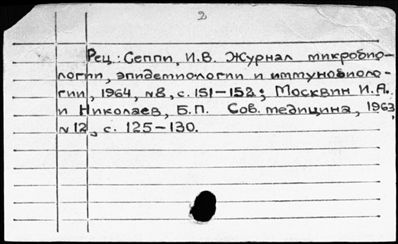 2
Рец.: Сеппи, И.В. Журнал микробио-
логии, эпидемиологии и иммунобиоло-
гии, 1964, №8, с. 151-152; Москвин И.А.
и Николаев, Б.П. Сов. медицина, 1963,
№12, с. 125-130.